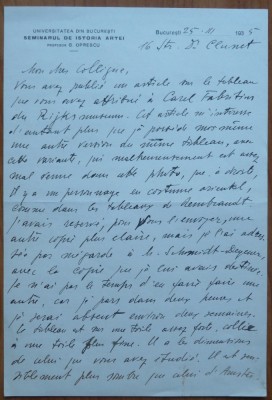 UNIVERSITATEA DIN BUCUREȘTI
SEMINARUL DE ISTORIA ARTEI
PROFESOR G. OPRESCU
București 25-XI 1935
16 Str. Dr Clunet
Mon cher Collègue,
Vous avez publié un article sur le tableau
que vous avez attribué à Carel Fabritius
du Rijksmuseum. Cet article m'intéresse
d'autant plus que je possède moi même
une autre version du même tableau, avec
cette variante, qui malheureusement est assez
mal venue dans cette photo, que, à droite,
il y a un personnage en costume oriental,
comme dans les tableaux de Rembrandt.
J'avais réservé, pour vous l'envoyer, une
autre copie plus claire, mais je l'ai adres
sée par mégarde à M. Schmidt-Degener,
avec la copie que je lui avais destinée.
Je n'ai pas le temps d'en faire faire une
autre, car je pars dans deux heures et
je serai absent environ deux semaines.
Le tableau est sur une toile assez forte, collée
à une toile plus fine. Il a les dimensions
de celui que vous avez étudié. Il est sen
siblement plus sombre que celui d'Amster